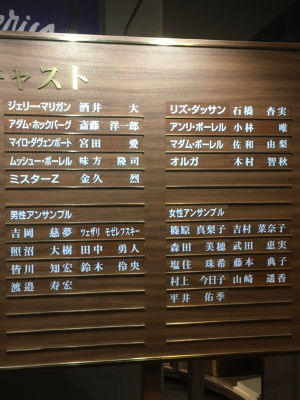 erica
キャスト
ジェリー・マリガン 酒井 大
アダム・ホックバーグ 斎藤 洋一郎
マイロ・ダヴェンポート 宮田 愛
ムッシュー・ボーレル 味方 隆司
ミスターZ 金久 烈
リズ・ダッサン 石橋 杏実
アンリ・ボーレル 小林 唯
マダム・ボーレル 佐和 由梨
オルガ 木村 智秋
男性アンサンブル
吉岡 慈夢 ツェザリ モゼレフスキー
照沼 大樹 田中 勇人
皆川 知宏 鈴木 伶央
渡邉 寿宏
女性アンサンブル
篠原 真梨子 吉村 菜奈子
森田 美穂 武田 恵実
塩住 珠希 藤本 典子
村上 今日子 山崎 遥香
平井 佑季